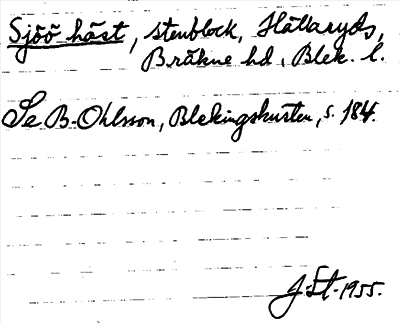 Sjöö häst, stenblock, Hällaryds,
Bräkne hd, Blek. l.
Se B. Ohlsson, Blekingskusten, s. 184.
J. St. 1955.